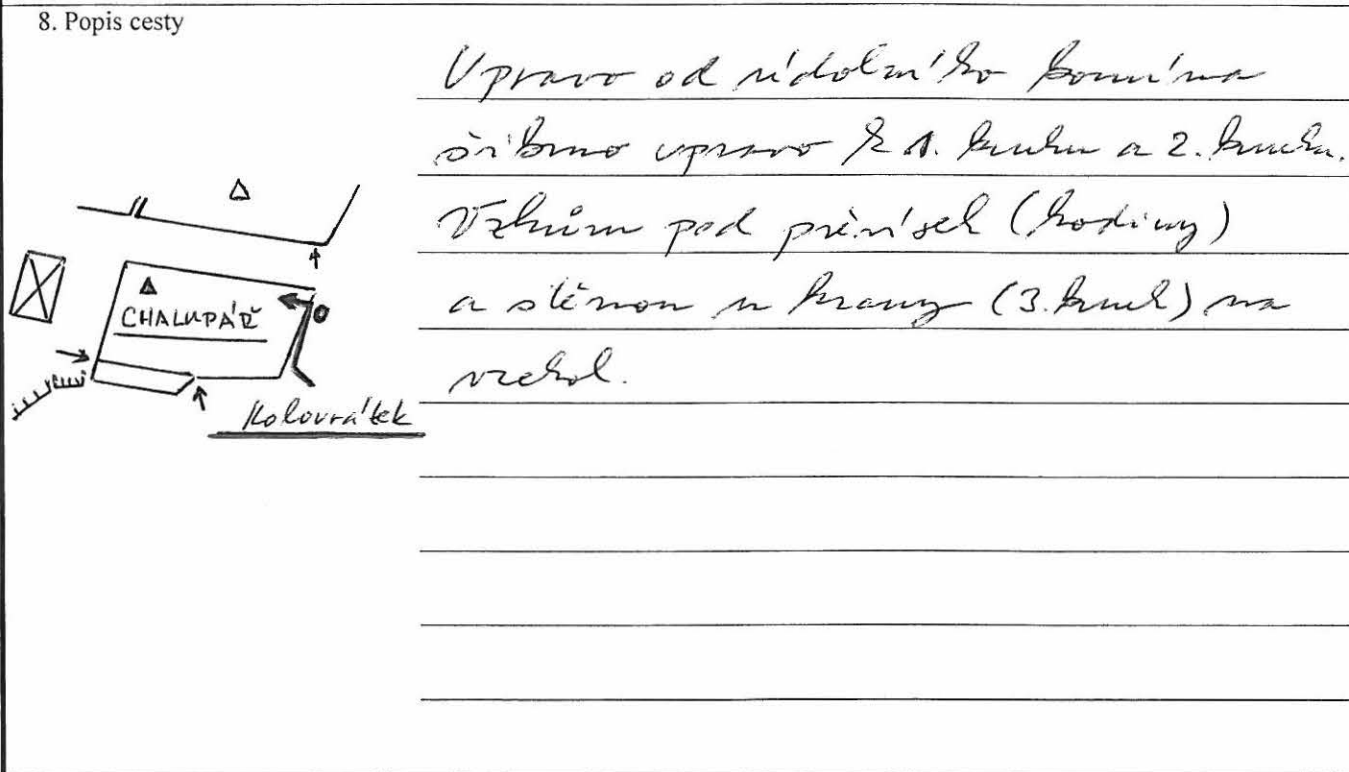 8. Popis cesty
Vpravo od údolního komína
šikmo vpravo k 1. kruhu a 2. kruhu.
Vzhůru pod převisek (hodiny)
a stěnou u hrany (3. kruh) na
vrchol.
CHALUPÁŘ
Kolovrátek